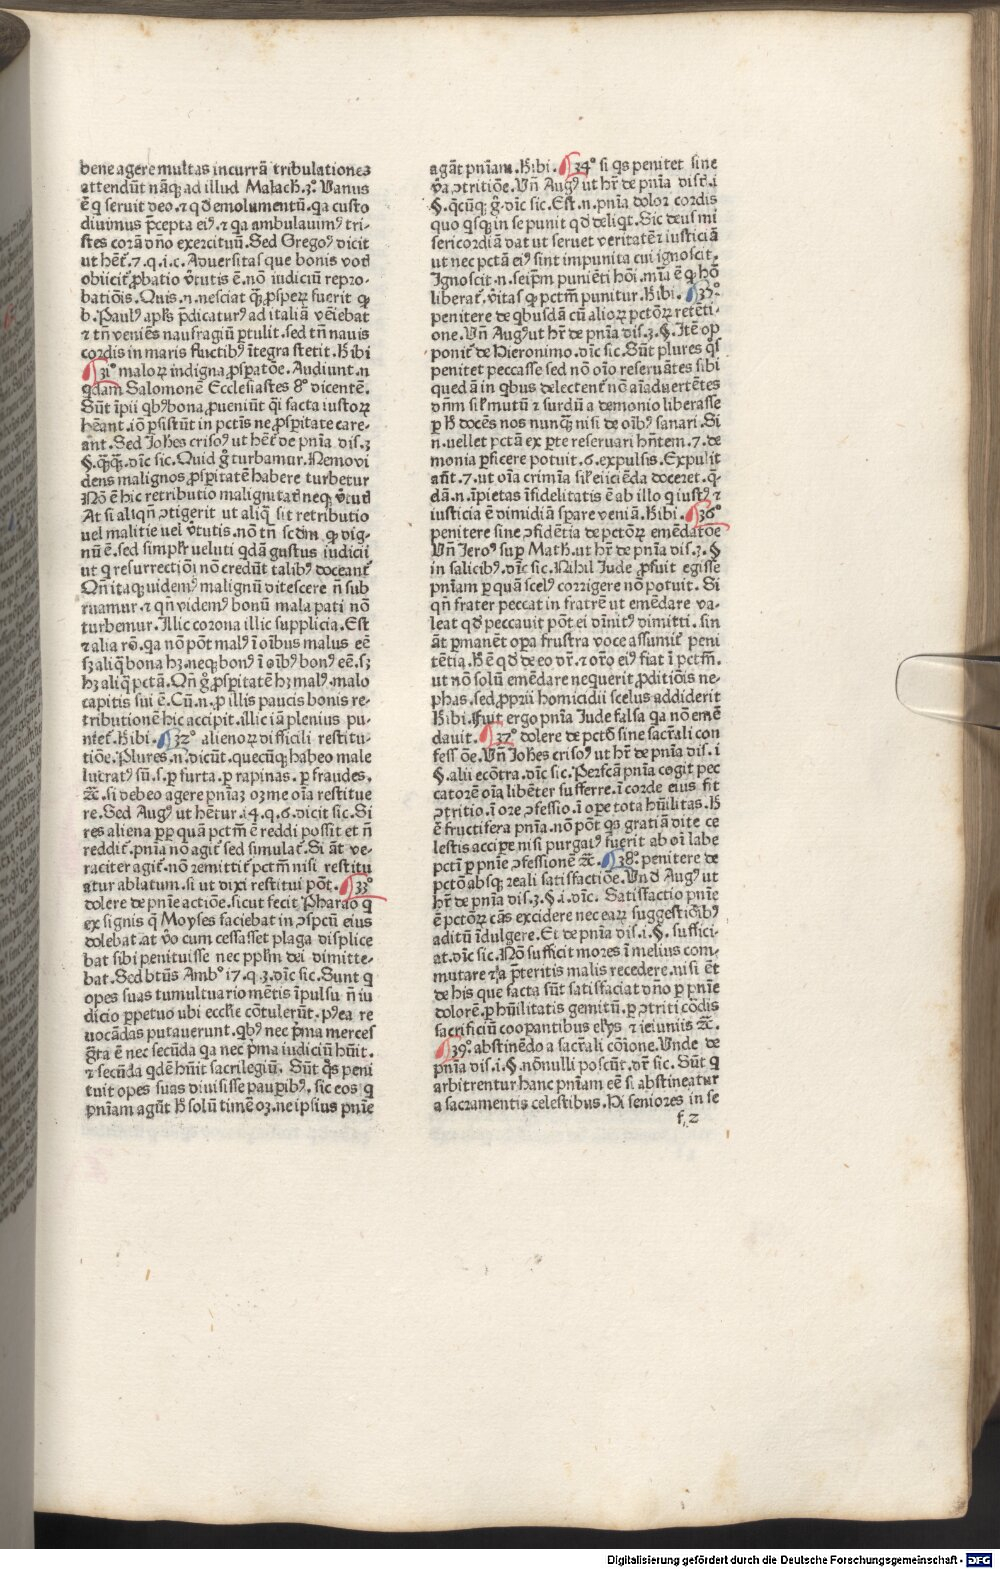 bene agere multas incurrā tribulationes
attendūt nāqꝫ ad illud Malach.3°. Vanus
ē q seruit deo.⁊ qd emolumentū.qa custo
diuimus p̄cepta eiꝰ.⁊ qa ambulauimꝰ tri-
stes corā dño exercituū. Sed Gregoꝰ dicit
ut hēt̄.7.q.i.c. Aduersitas que bonis vot̄
obiicit̄ ꝓbatio v̄tutis ē.nō iudiciū repro-
batiōis. Quis.n.nesciat qꝫ ꝓsperꝝ fuerit qꝫ
b. Paulꝰ apl̄s p̄dicaturꝰ ad italiā vēiebat
⁊ tn̄ veniēs naufragiū ꝑtulit.sed tn̄ nauis
cordis in maris fluctibꝰ ītegra stetit. Hibi
¶31° malorꝝ indigna ꝓsꝑatōe. Audiunt.n
qdam Salomonē Ecclesiastes 8° dicentē.
Sūt īpii qbꝰ bona ꝓueniūt qͥ facta iustorꝝ
hēant.iō ꝑsistūt in pctīs ne ꝓsperitate care-
ant. Sed Johes crisoꝰ ut hēt̄ de pnīa dis.3
§.qꝫqꝫ.dīc sic. Quid g̊ turbamur. Nemo vi
dens malignos ꝓsꝑitatē habere turbetur
Nō ē hic retributio malignitat̄ neqꝫ v̄tut̄
At si aliqn̄ ꝯtigerit ut aliqͣ sit retributio
uel malitie uel v̄tutis.nō tn̄ scdm̄ qꝫ dig-
nū ē.sed simpl̄r ueluti qdā gustus iudicii
ut q resurrectiōi nō credūt talibꝰ doceant̄
Qn̄ itaqꝫ uidemꝰ malignū ditescere n̄ sub
ruamur.⁊ qn̄ videmꝰ bonū mala pati nō
turbemur. Illic corona illic supplicia. Est
⁊ alia rō.qa nō pōt malꝰ ī oībus malus eē
sꝫ aliqͣ bona hꝫ.neqꝫ bonꝰ ī oībꝰ bonꝰ eē.sꝫ
hꝫ aliqͣ pctā. Qn̄ g̊ ꝓsꝑitatē hꝫ malꝰ.malo
capitis sui ē. Cū.n.ꝓ illis paucis bonis re-
tributionē hic accipit.illic iā plenius pu-
niet̄. Hibi. ¶32° alienorꝝ difficili restitu-
tiōe. Plures.n.dicūt.quecūqꝫ habeo male
lucratꝰ sū.s.ꝑ furta.ꝑ rapinas.ꝑ fraudes.
⁊c̄.si debeo agere pnīaꝫ oꝫ me oīa restitue
re. Sed Augꝰ ut hētur.i4.q.6.dicit sic. Si
res aliena ꝓp quā pctm̄ ē reddi possit et n̄
reddit̄.pnīa nō agit̄ sed simulat̄. Si āt ve-
raciter agit̄.nō remittit̄ pctm̄ nisi restitu
atur ablatum.si ut dixi restitui pōt. ¶33°
dolere de pnīe actiōe.sicut fecit Pharao q
ex signis q̄ Moyses faciebat in ꝯspcū eius
dolebat.at v̊o cum cessasset plaga displice
bat sibi penituisse nec ppl̄m dei dimitte-
bat. Sed btūs Amb° i7.q.3.dīc sic. Sunt q
opes suas tumultuario mētis īpulsu n̄ iu
dicio ꝑpetuo ubi eccl̄ie cōtulerūt.pꝰea re
uocādas putauerunt.qbꝰ nec p̄ma merces
g̊ta ē nec secūda qa nec p̄ma iudiciū hūit.
⁊ secūda qdē hūit sacrilegiū. Sūt qs̄ peni
tuit opes suas diuisisse pauꝑibꝰ.sic eos q
pnīam agūt H solū timēoꝫ.ne ipsius pnīe
agāt pnīam. Hibi. ¶34° si qs penitet sine
v̊a ꝯtritiōe. Vn̄ Augꝰ ut hr̄ de pnīa dist̄.i
§.qcūqꝫ g̊.dīc sic. Est.n.pnīa dolor cordis
quo qsqꝫ in se punit qd deliqt. Sic deus mi
sericordiā dat ut seruet veritatē ⁊ iusticiā
ut nec pctā eiꝰ sint impunita cui ignoscit.
Ignoscit.n.seip̄m puniēti hōi.mīa ē qꝫ hō
liberat̄.v̄itas qꝫ pctm̄ punitur. Hibi. ¶35°
penitere de qbusdā cū aliorꝝ pctōꝝ retēti-
one. Vn̄ Augꝰ ut hr̄ de pnīa dis.3.§. Itē op
ponit̄ de Hieronimo.dīc sic. Sūt plures qs̄
penitet peccasse sed nō oīo reseruātes sibi
quedā in qbus delectent̄ nō aīaduertētes
dn̄m sil̄ mutū ⁊ surdū a demonio liberasse
ꝑ H docēs nos nunqꝫ nisi de oībꝰ sanari. Si
n.uellet pctā ex ꝑte reseruari hn̄tem.7.de
monia ꝓficere potuit.6.expulsis. Expulit
aūt.7.ut oīa crimīa sil̄ eiiciēda doceret.q-
dā.n.īpietas īfidelitatis ē ab illo q iustꝰ ⁊
iusticia ē dimidiā sꝑare veniā. Hibi. ¶36°
penitere sine ꝯfidētia de pctōꝝ emēdatōe
Vn̄ Jeroꝰ suꝑ Math.ut hr̄ de pnīa dis.3.§
in salicibꝰ.dīc sic. Nihil Jude ꝓfuit egisse
pnīam ꝑ quā scelꝰ corrigere nō potuit. Si
qn̄ frater peccat in fratrē ut emēdare va-
leat qd peccauit pōt ei dīnitꝰ dimitti.sin
āt ꝑmanēt oꝑa frustra voce assumit̄ peni
tētia. H ē qd de eo dr̄.⁊ or̄o eiꝰ fiat ī pctm̄.
ut nō solū emēdare nequerit ꝓditiōis ne-
phas.sed ꝓprii homicidii scelus addiderit
Hibi. Fuit ergo pnīa Jude falsa qa nō emē
dauit. ¶37° dolere de pctō sine sacr̄ali con
fessōe. Vn̄ Johes crisoꝰ ut hr̄ de pnīa dis.i
§.alii ecōtra.dīc sic. Perfcā pnīa cogit pec
catorē oīa libēter sufferre.ī corde eius sit
ꝯtritio.ī ore ꝯfessio.ī oꝑe tota hūilitas. H
ē fructifera pnīa.nō pōt qs gratiā dite ce
lestis accipe nisi purgatꝰ fuerit ab oī labe
pctī ꝑ pnīe ꝯfessionē ⁊c̄. ¶38°. penitere de
pctō absqꝫ reali satisfactiōe. Vnd̄ Augꝰ ut
hr̄ de pnīa dis.3.§ i.dīc. Satisfactio pnīe
ē pctōꝝ cās excidere nec earꝝ suggestiōibꝰ
aditū īdulgere. Et de pnīa dis.i.§.suffici-
at.dīc sic. Nō sufficit mores ī melius com-
mutare ⁊ a p̄teritis malis recedere.nisi ēt
de his que facta sūt satisfaciat dn̄o ꝑ pnīe
dolorē.ꝑ hūilitatis gemitū.ꝑ ꝯtriti cōdis
sacrificiū cooꝑantibus elꝰys ⁊ ieiuniis ⁊c̄.
¶39°. abstinēdo a sacr̄ali cōione. Vnde de
pnīa dis.i.§.nōnulli poscūt.dr̄ sic. Sūt q
arbitrentur hanc pnīam eē si abstineatur
a sacramentis celestibus. Hi seniores in se
f.2
Digitalisierung gefördert durch die Deutsche Forschungsgemeinschaft - DFG